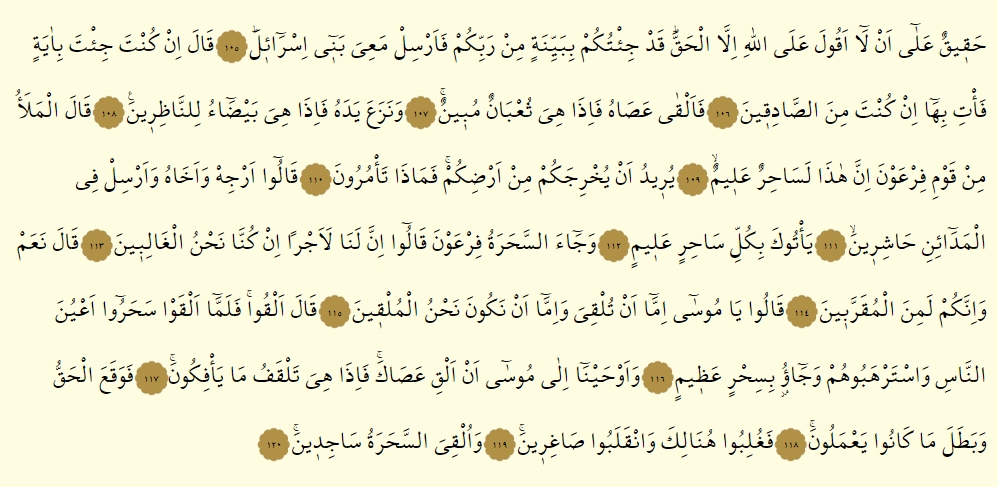 حَق۪يقٌ عَلٰٓى اَنْ لَٓا اَقُولَ عَلَى اللّٰهِ اِلَّا الْحَقَّۜ قَدْ جِئْتُكُمْ بِبَيِّنَةٍ مِنْ رَبِّكُمْ فَاَرْسِلْ مَعِيَ بَن۪ٓي اِسْرَٓائ۪لَۜ ﴿١٠٥﴾ قَالَ اِنْ كُنْتَ جِئْتَ بِاٰيَةٍ
فَأْتِ بِهَٓا اِنْ كُنْتَ مِنَ الصَّادِق۪ينَ ﴿١٠٦﴾ فَاَلْقٰى عَصَاهُ فَاِذَا هِيَ ثُعْبَانٌ مُب۪ينٌۚ ﴿١٠٧﴾ وَنَزَعَ يَدَهُ فَاِذَا هِيَ بَيْضَٓاءُ لِلنَّاظِر۪ينَ۟ ﴿١٠٨﴾ قَالَ الْمَلَأُ
مِنْ قَوْمِ فِرْعَوْنَ اِنَّ هٰذَا لَسَاحِرٌ عَل۪يمٌۙ ﴿١٠٩﴾ يُر۪يدُ اَنْ يُخْرِجَكُمْ مِنْ اَرْضِكُمْۚ فَمَاذَا تَأْمُرُونَ ﴿١١٠﴾ قَالُٓوا اَرْجِهْ وَاَخَاهُ وَاَرْسِلْ فِي
الْمَدَٓائِنِ حَاشِر۪ينَۙ ﴿١١١﴾ يَأْتُوكَ بِكُلِّ سَاحِرٍ عَل۪يمٍ ﴿١١٢﴾ وَجَٓاءَ السَّحَرَةُ فِرْعَوْنَ قَالُٓوا اِنَّ لَنَا لَاَجْرًا اِنْ كُنَّا نَحْنُ الْغَالِب۪ينَ ﴿١١٣﴾ قَالَ نَعَمْ
وَاِنَّكُمْ لَمِنَ الْمُقَرَّب۪ينَ ﴿١١٤﴾ قَالُوا يَا مُوسٰٓى اِمَّٓا اَنْ تُلْقِيَ وَاِمَّٓا اَنْ نَكُونَ نَحْنُ الْمُلْق۪ينَ ﴿١١٥﴾ قَالَ اَلْقُواۚ فَلَمَّٓا اَلْقَوْا سَحَرُٓوا اَعْيُنَ
النَّاسِ وَاسْتَرْهَبُوهُمْ وَجَٓاؤُ۫ بِسِحْرٍ عَظ۪يمٍ ﴿١١٦﴾ وَاَوْحَيْنَٓا اِلٰى مُوسٰٓى اَنْ اَلْقِ عَصَاكَۚ فَاِذَا هِيَ تَلْقَفُ مَا يَأْفِكُونَۚ ﴿١١٧﴾ فَوَقَعَ الْحَقُّ
وَبَطَلَ مَا كَانُوا يَعْمَلُونَۚ ﴿١١٨﴾ فَغُلِبُوا هُنَالِكَ وَانْقَلَبُوا صَاغِر۪ينَۚ ﴿١١٩﴾ وَاُلْقِيَ السَّحَرَةُ سَاجِد۪ينَۚ ﴿١٢٠﴾